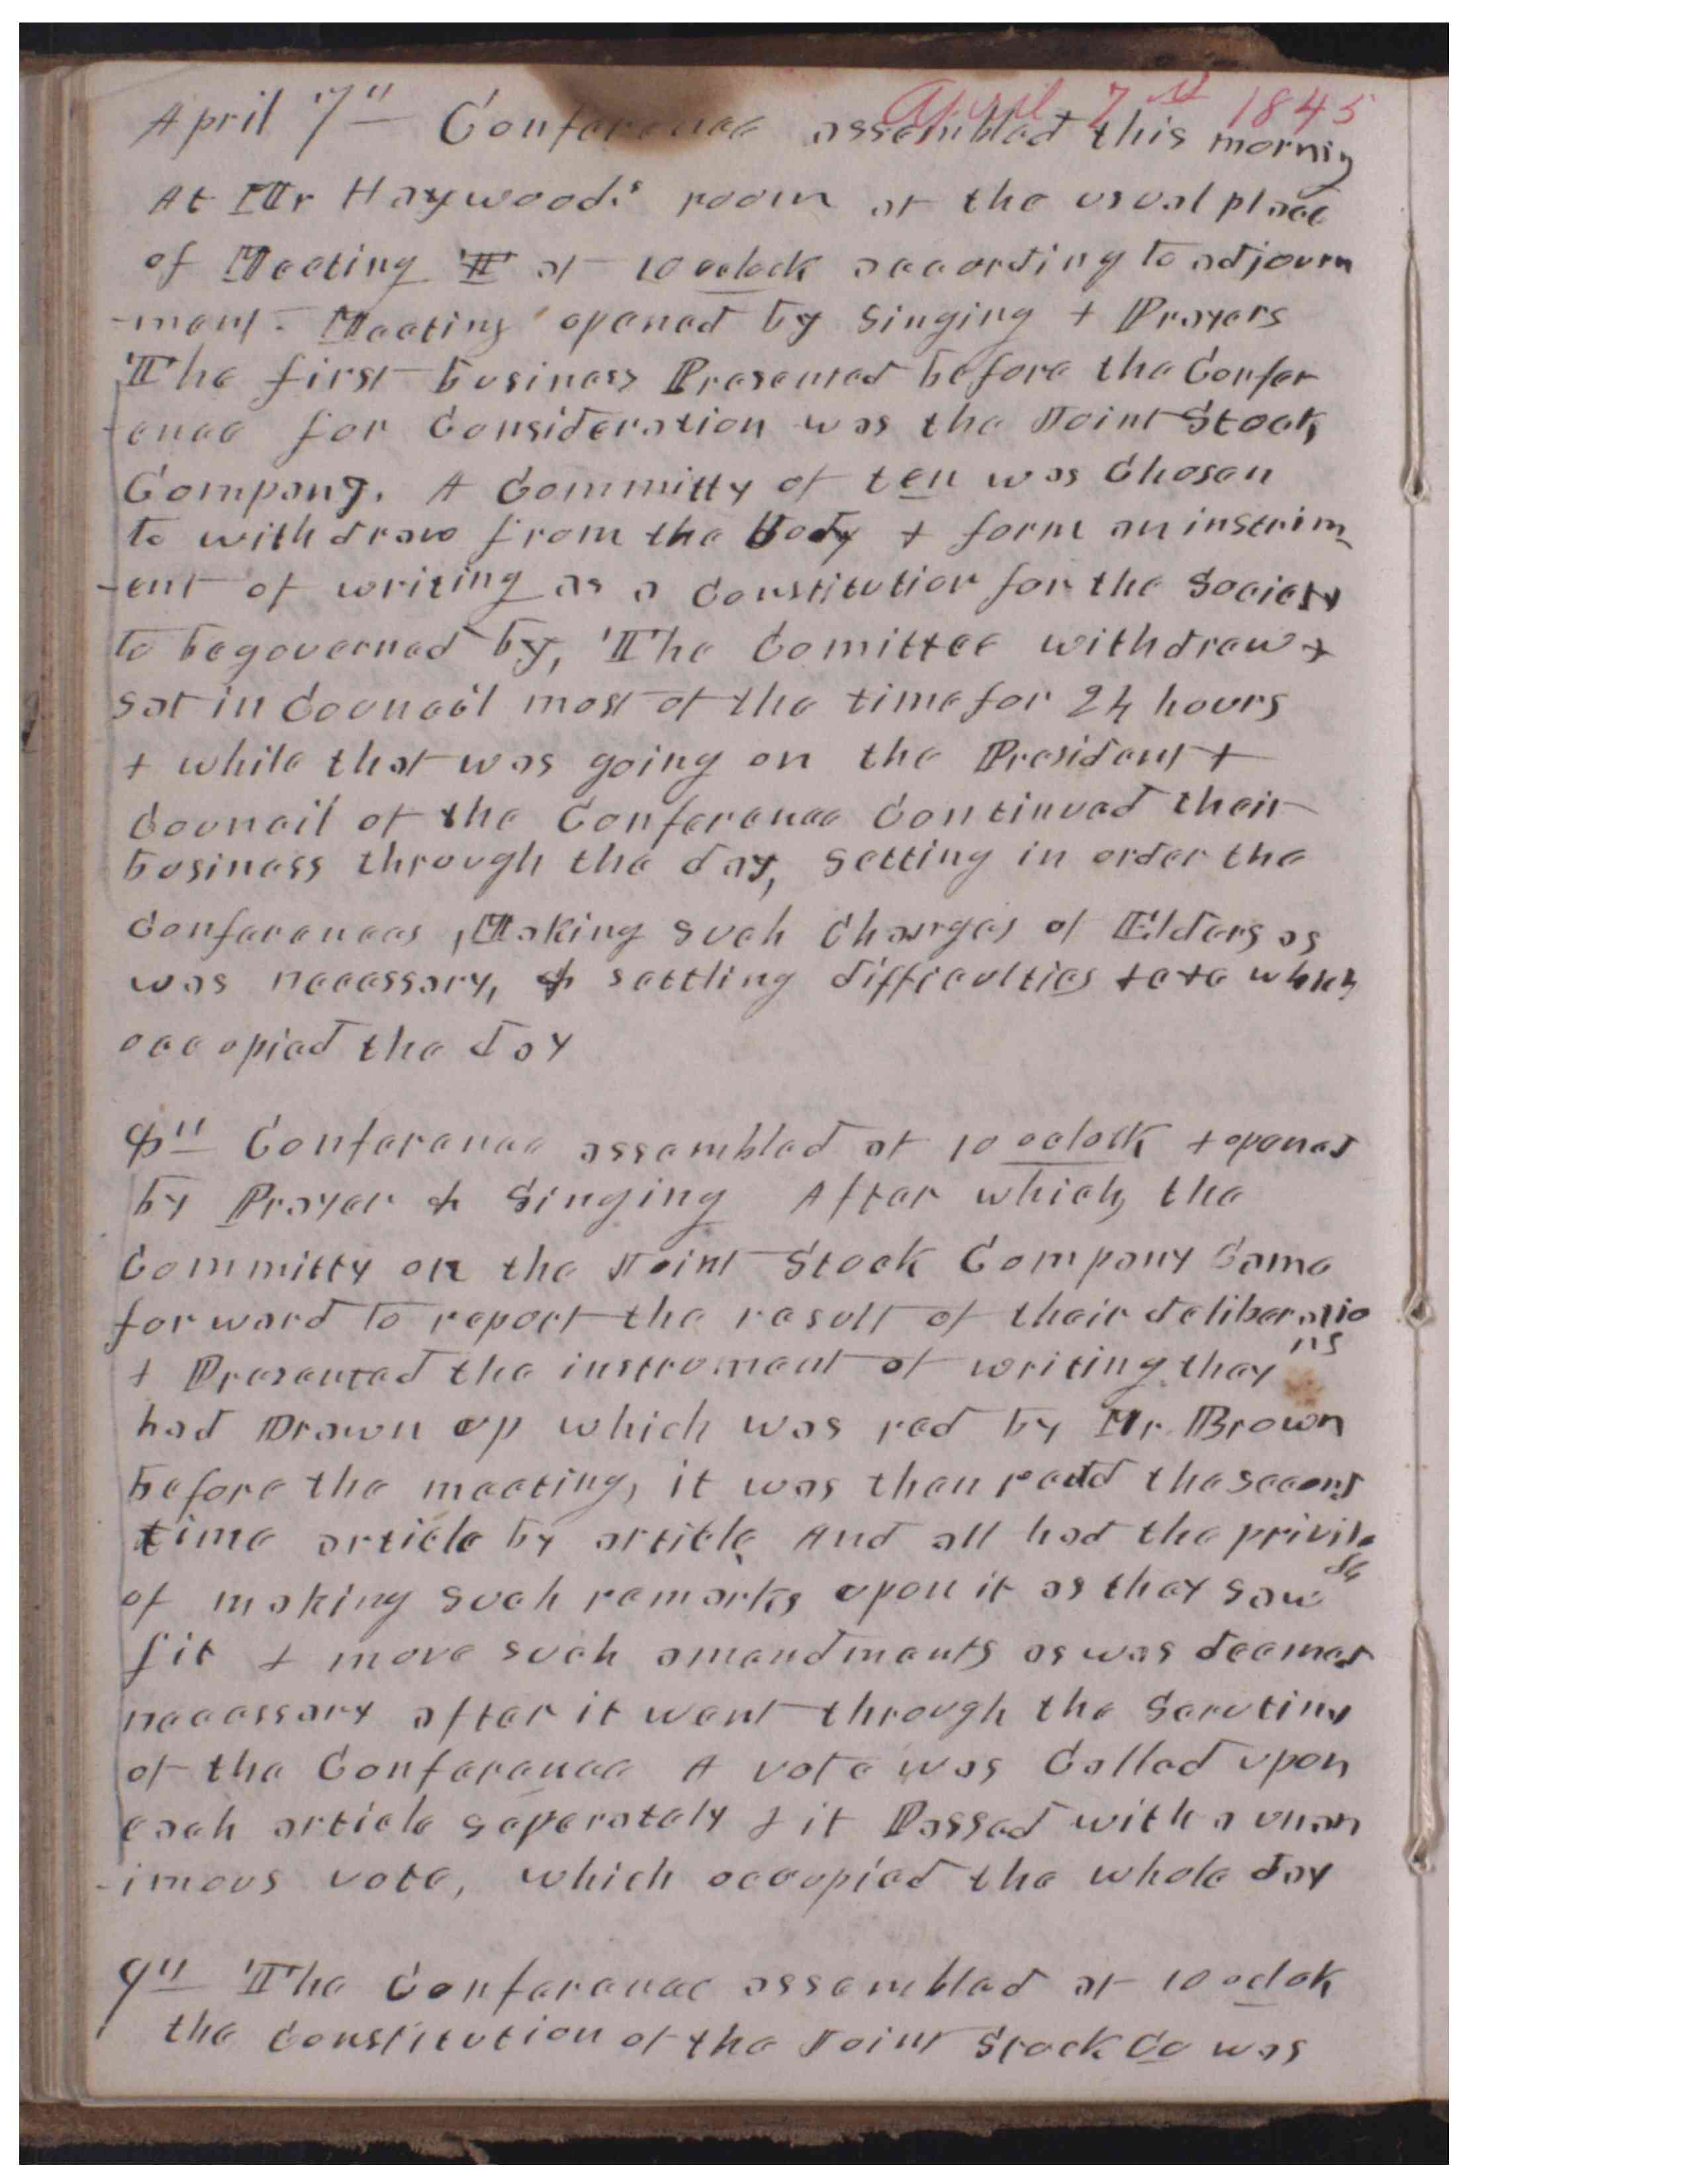 April 7th 1845
April 7" Conference assembled this morning
At Mr Haywoods' room at the usual place
of Meeting at 10 oclock according to adjourn
-ment. Meeting opened by Singing + Prayers
The first business Presented before the Confer
-ence for Consideration was the Joint Stock
Company. A Committy of ten was Chosen
to withdraw from the body + form an instrim
-ent of writing as a Constitution for the Society
to be governed by, The Comittee withdrew +
sat in Councel most of the time for 24 hours
+ while that was going on the President +
Council of the Conference Continued their
business through the day, setting in order the
Conferences, Making such Changes of Elders as
was necessary, & settling difficulties +c+c which
occupied the day
8" Conference assembled at 10 oclock + opened
by Prayer & Singing After which, the
Committy on the Joint Stock Company Came
forward to report the result of their deliberatio
ns
+ Presented the instrument of writing they
had Drawn up which was red by Mr. Brown
before the meeting, it was then read the second
time article by article And all had the privile
ge
of making such remarks upon it as they saw
fit + move such amendments as was deemed
necessary after it went through the Scrutiny
of the Conference A vote was Called upon
each article seperately & it Passed with a unan
-imous vote, which occupied the whole day
9" The Conference assembled at 10 oclok
the Constitution of the Joint Stock Co was